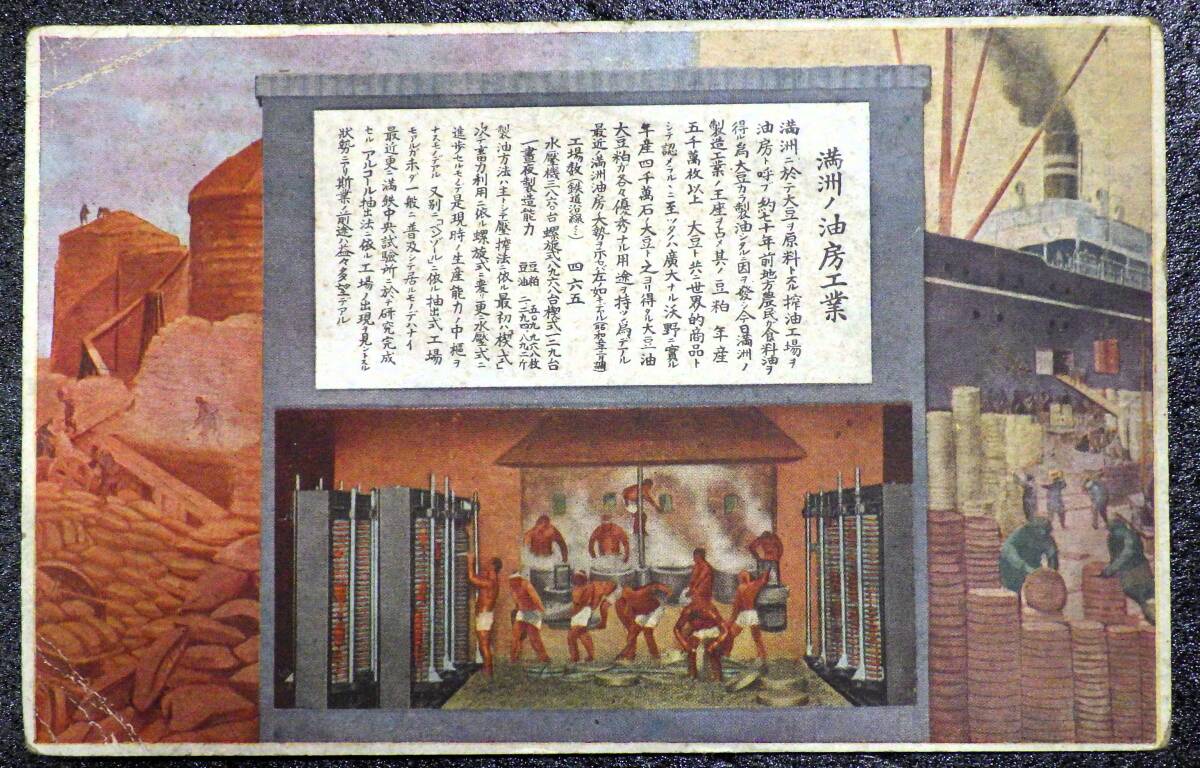 満洲ノ油房工業
満洲ニ於テ大豆ヲ原料トスル搾油工場ヲ
油房ト呼ブ約七十年前地方農民ガ食料油ヲ
得ル為大豆カラ製油シタルニ因ヲ發シ今日満洲ノ
製造工業ノ王座ヲ占メ其ノ豆粕 年産
五千萬枚以上 大豆ト共ニ世界的商品ト
シテ認メラルヽニ至ツタノハ廣大ナル沃野ニ實ル
年産四千萬石ノ大豆ト之ヨリ得タル大豆油
大豆粕ガ各々優秀ナル用途ヲ持ツ為デアル
最近満洲油房ノ大勢ヲ示セバ左ノ如クデアル
工場数(鉄道沿線) 四六五
水壓機三八六台 螺旋式八九六八台 楔式一二九台
一晝夜製造能力
豆粕
豆油
製油方法ハ主トシテ壓搾法ニ依ル最初ハ「楔式」
次デ畜力利用ニ依ル螺旋式ニ変リ更ニ水壓式ニ
進歩セルモノデ是現時ノ生産能力ノ中樞ヲ
ナスモノデアル 又別ニ「ベンゾール」ニ依ル抽出式工場
モアルガ未ダ一般ニ普及シテ居ルモノデハナイ
最近更ニ満鉄中央試験所ニ於テ研究完成
セル アルコール抽出法ニ依ル工場ノ出現ヲ見ントスル
狀勢ニアリ斯業ノ前途ハ益々多望デアル